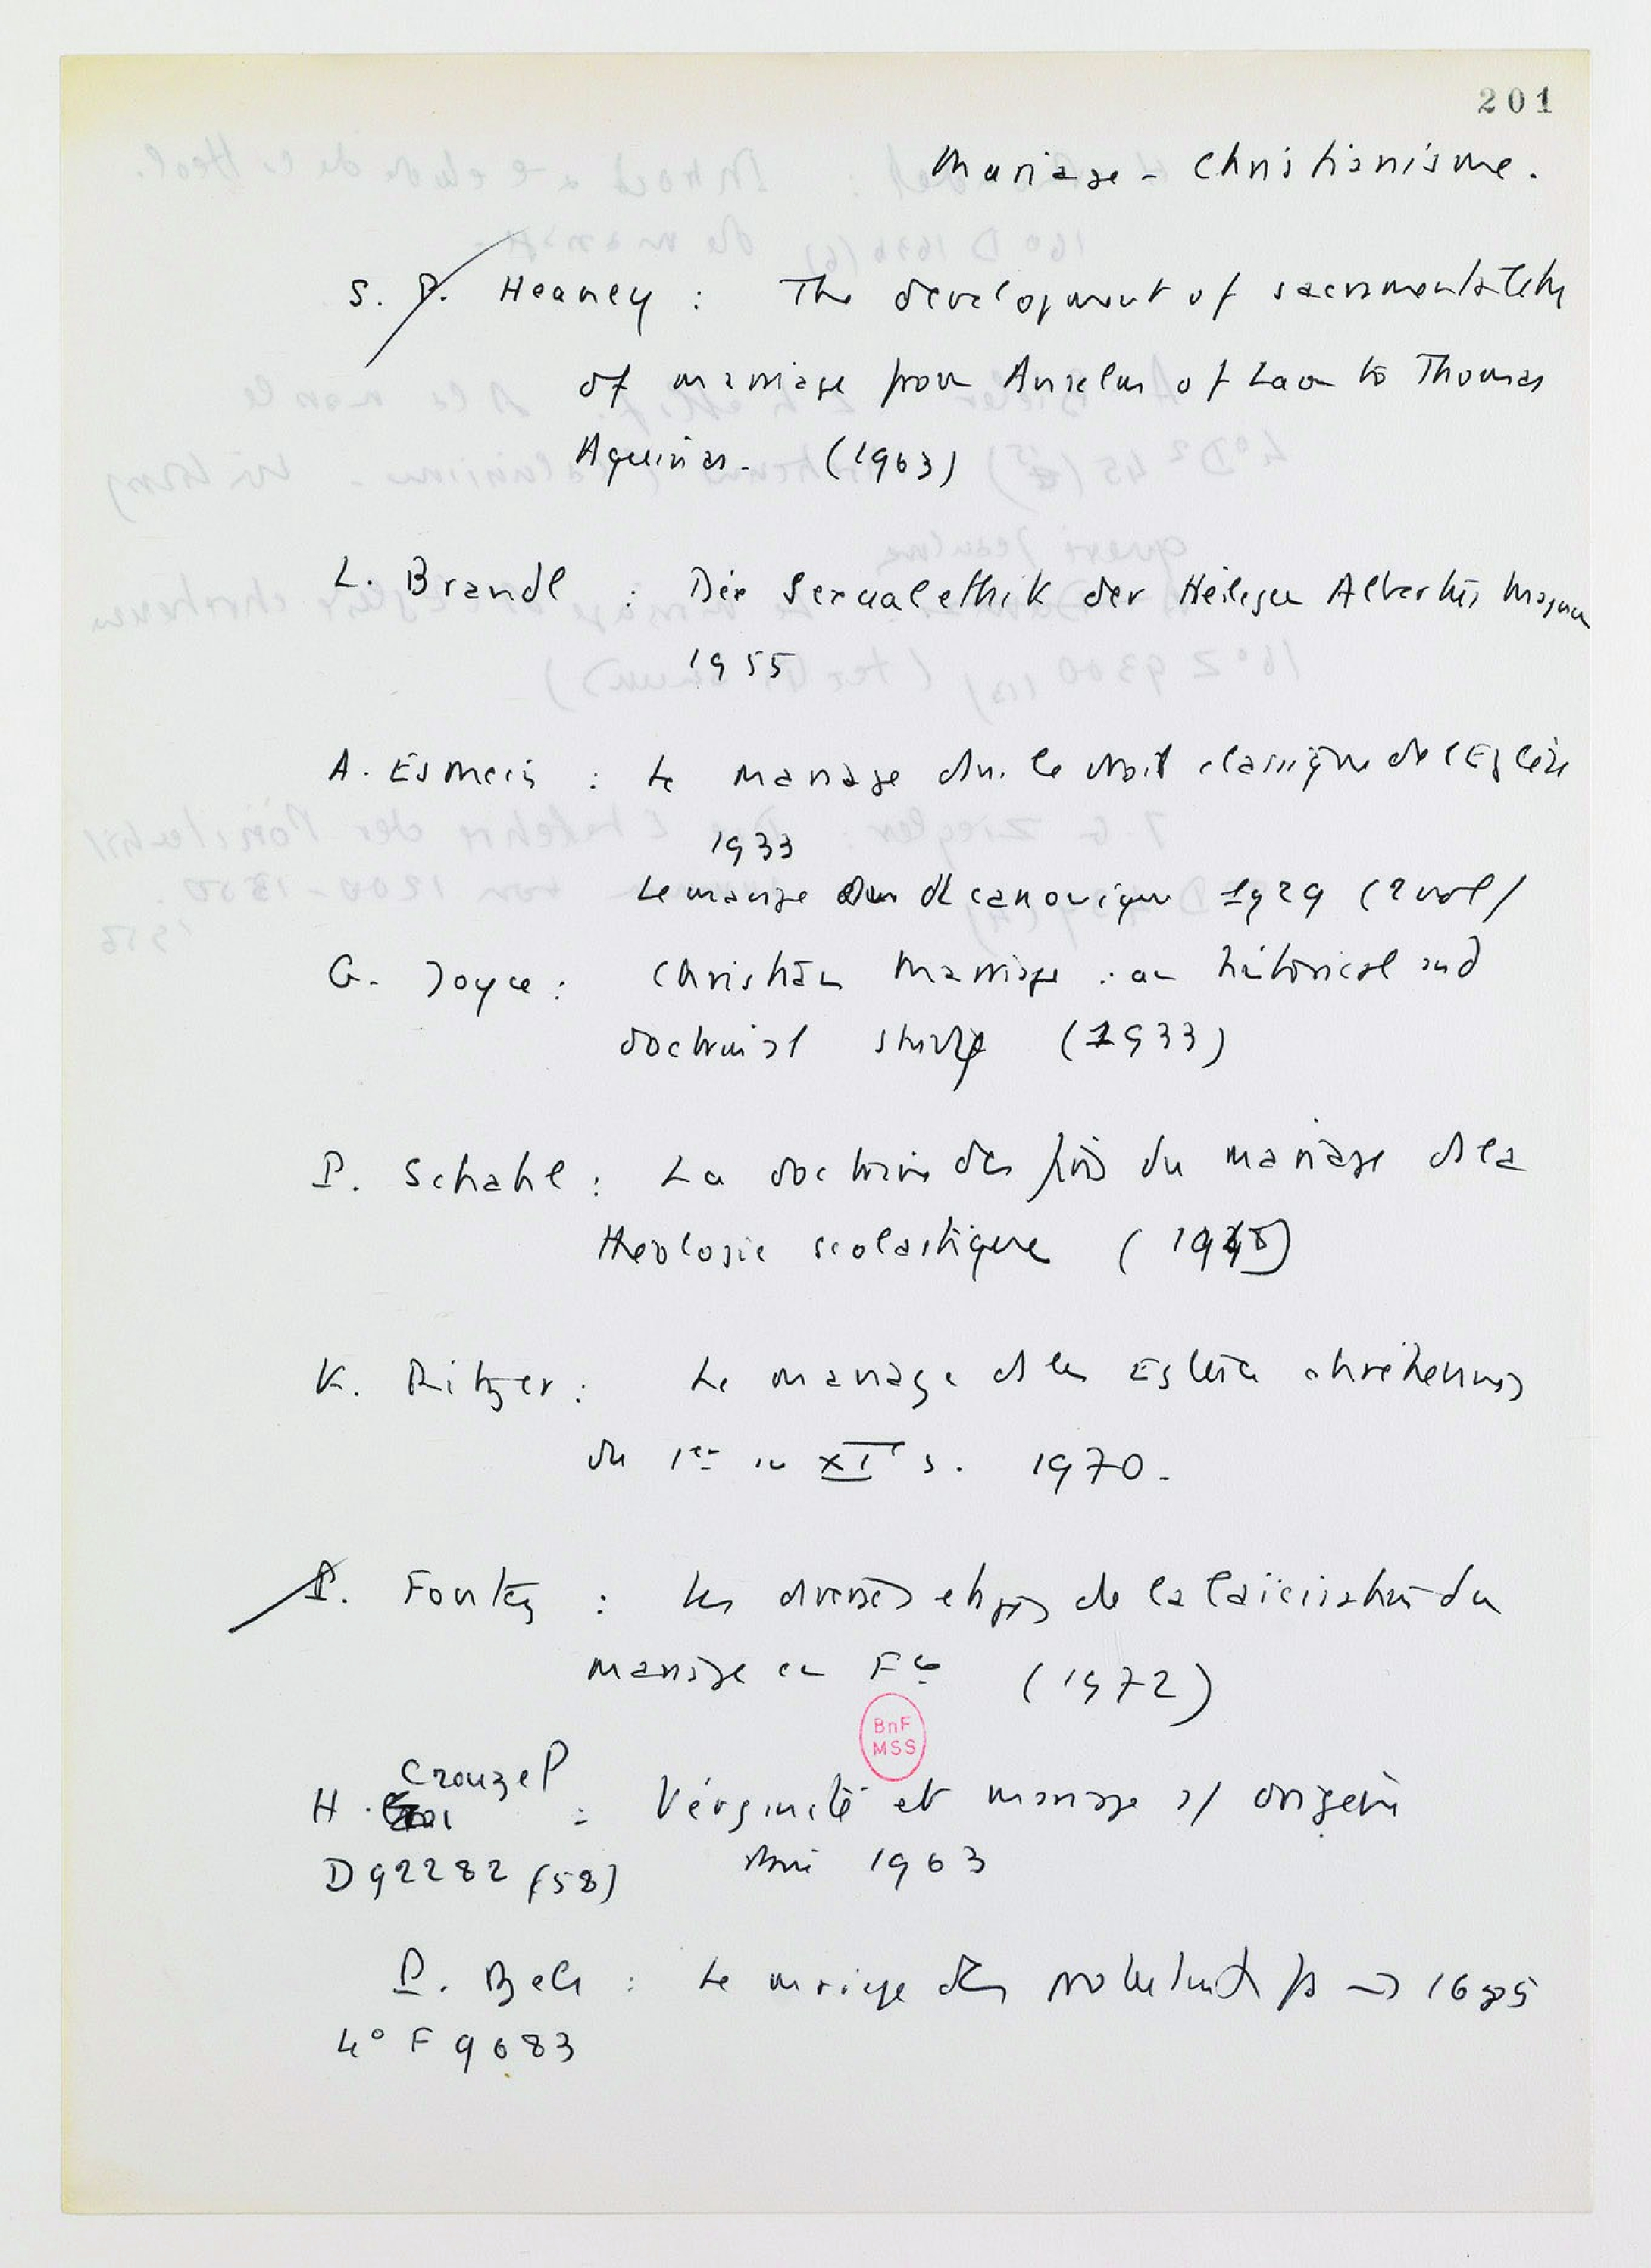 201
Mariage - Christianisme.
S. P. Heaney : The development of sacramentality
of marriage from Anselm of Laon to Thomas
Aquinas. (1963)
L. Brandl : Die Sexualethik der Heiligen Albertus Magnus
1955
A. Esmein : Le mariage dns le droit classique de l'Eglise
1933
Le mariage dns dt canonique 1929 (2 vol)
G. Joyce : Christian Marriage : an historical and
doctrinal study (1933)
P. Schahl : La doctrine des fins du mariage ds la
théologie scolastique (1948)
K. Ritzer : Le mariage ds les Eglises chrétiennes
du 1er au XIe s. 1970.
P. Fontes : Les diverses etapes de la laïcisation du
mariage en Fce (1972)
BnF
MSS
Crouzel
H. : Virginité et mariage s/ Origène
1963
D 92282 (58)
P. Bels : Le mariage des protestants fs → 1685
4° F 9083